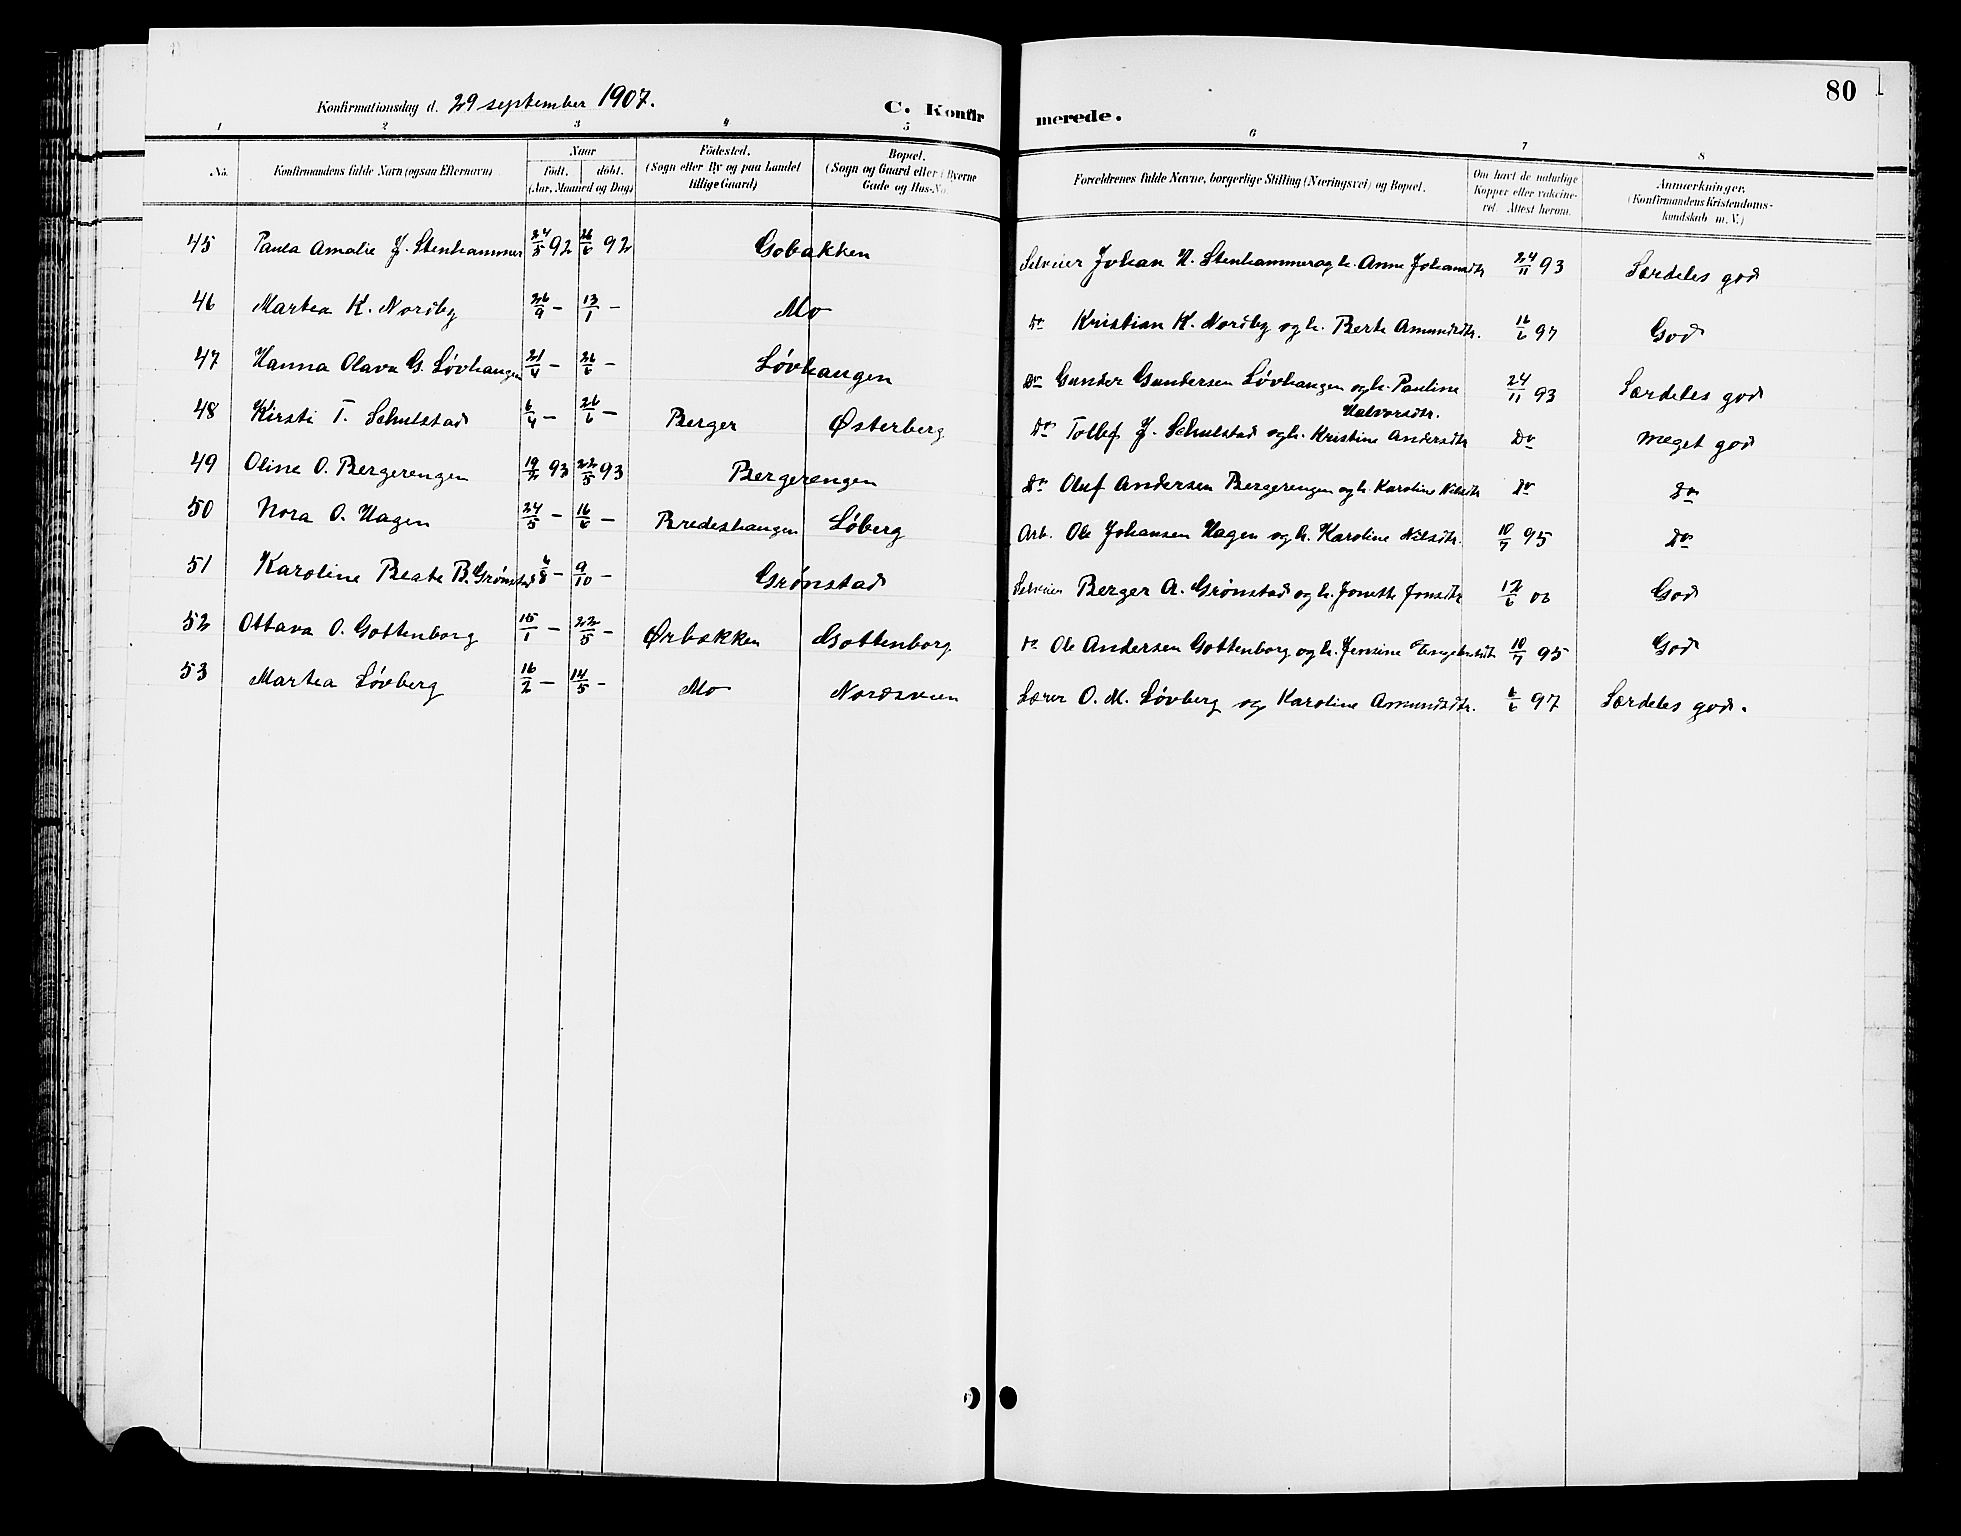 80
Konfirmationsdag d. 29 september 1907.
C. Konfirmerede.
1 2 3 4 5 6 7 8
No.
Konfirmandens fulde Navn (ogsaa Efternavn)
Naar
født. døbt.
(Aar, Maaned og Dag)
Fødested.
(Sogn eller By og paa Landet
tillige Gaard)
Bopæl.
(Sogn og Gaard eller i Byerne
Gade og Hus-No.
Forældrenes fulde Navne, borgerlige Stilling (Næringsvei) og Bopæl.
Om havt de naturlige
Kopper eller vaccine-
ret. Attest herom.
Anmærkninger.
(Konfirmandens Kristendoms-
kundskab m. V.)
45 Paula Amalie J. Stenhammer 24/5 92 26/6 92 Gobakken Selveier Johan N. Stenhammer og h. Anne Johansdtr 24/11 93 Særdeles god
46 Martea K. Nordby 26/9 — 13/1 — Mo Do Kristian K. Nordby og h. Berte Amundsdtr. 16/6 97 God
47 Hanna Olava G. Løvhaugen 21/4 — 26/6 — Løvhaugen Do Gunder Gundersen Løvhaugen og h. Pauline 24/11 93 Særdeles god
Halvorsdtr.
48 Kirsti T. Schulstad 6/4 — 26/6 — Berger Østerberg Do Tollef J. Schulstad og h. Kristine Andersdtr Do meget god
49 Oline O. Bergerengen 19/2 93 22/5 93 Bergerengen Do Oluf Andersen Bergerengen og h. Karoline Nilsdtr Do Do
50 Nora O. Hagen 24/5 — 16/6 — Bredeshaugen Løberg Arb. Ole Johansen Hagen og h. Karoline Nilsdtr. 10/7 95 Do
51 Karoline Beate B. Grønstad 6/8 — 9/10 — Grønstad Selveier Berger A. Grønstad og h. Jonette Jonsdtr 12/6 00 God
52 Ottava O. Gottenborg 15/1 — 22/5 — Ørbækken Gottenborg Do Ole Andersen Gottenborg og h. Jensine 10/7 95 God
53 Martea Løvberg 16/2 — 14/5 — Mo Nordsveen Lærer O. M. Løvberg og Karoline Amundsdtr. 6/6 97 Særdeles god.